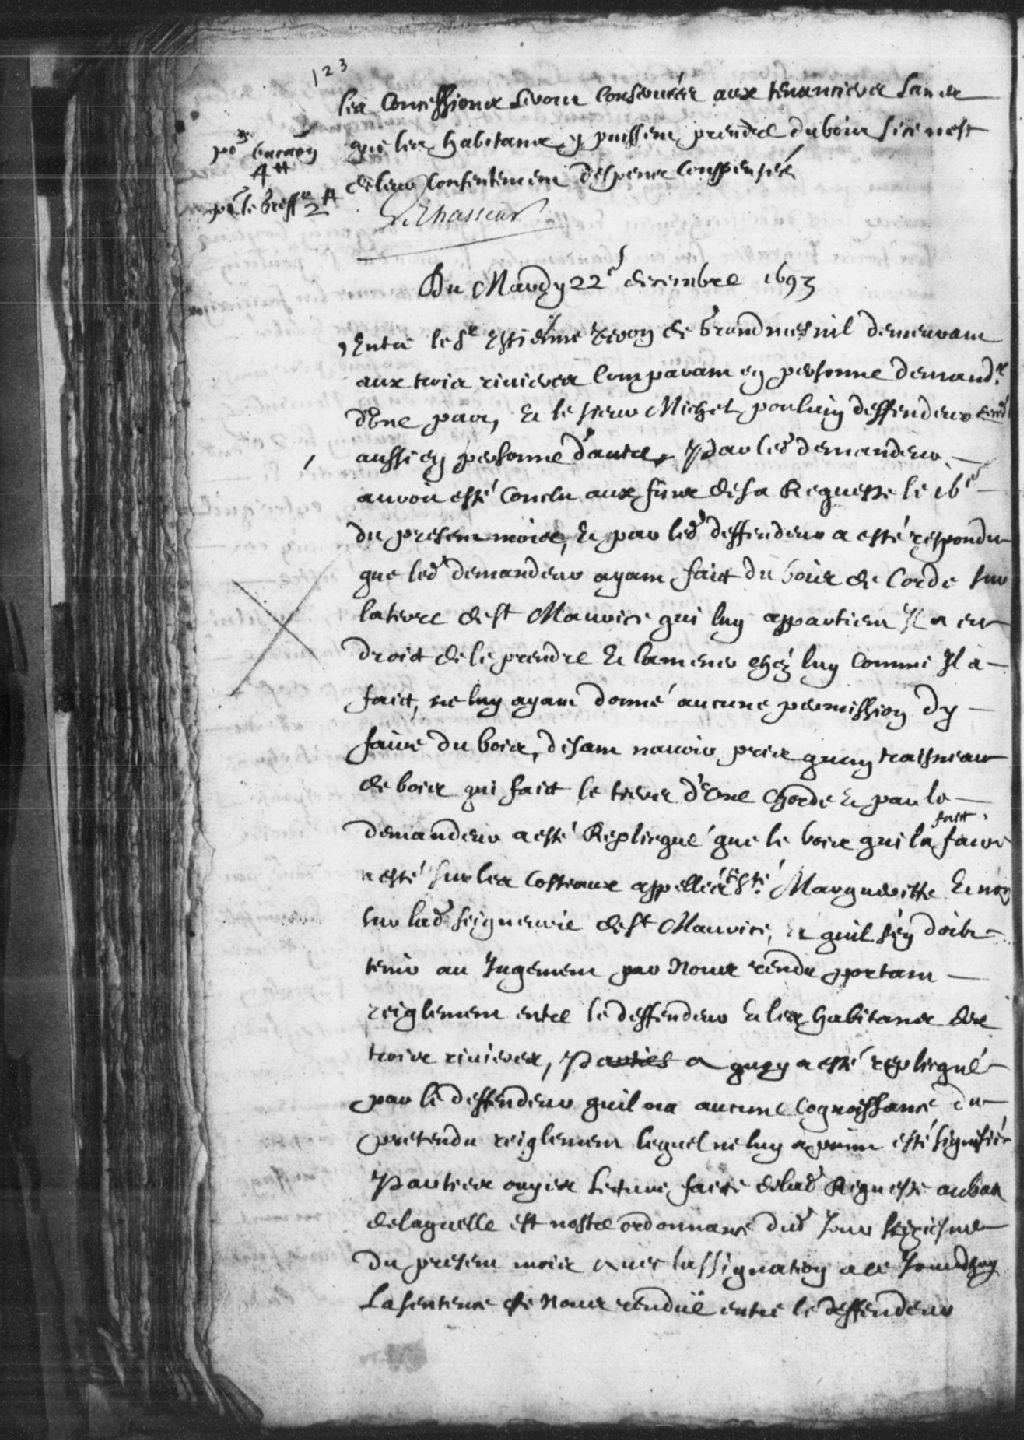 123
les Concessions seront Conservées aux tenanciers sans
que les habitans y puissent prendre du bois si ce n'est
de leur Consentement despens Compensés
po.r vacaōn
4 tt
po.r le greff.r 2 tt
LeChasseur
Du Mardy 22e decembre 1693
Entre le Sr Estienne Veron de Grandmesnil demeurant
aux trois rivieres Comparant en personne demandr
d'Une part, Et le sieur Michel poulain deffendeur
aussi en personne d'autre, Par led demandeur
auroit esté Conclu aux fins de sa Requeste le 16e
du present mois, Et par led deffendeur a esté respondu
que led demandeur ayant faict du bois de Corde sur
la terre de St Maurice qui luy appartient Il a eu
droict de le prendre Et lamener chéz luy comme Il a
faict, ne luy ayant donné aucune permission dy
faire du bois, disant navoir pris quun traisneau
de bois qui faict le tiers d'Une Chorde Et par le
demandeur a esté Repliequé que le bois qui la faict faire
a esté sur les Costeaux appellés Ste Marguerite Et non
sur lad seigneurie de St Maurice, Et quil sen doibt
tenir au Jugement par Nous rendu portant
reiglement entre le deffendeur Et les habitans des
trois rivieres, Parties a quoy a esté repliequé
par le deffendeur quil na aucune Cognoissance du
pretendu reiglement lequel ne luy a point esté signifié
Parties ouyes Lecture faite de lad Requeste au bas
de laquelle est nostre ordonnance dud Jour seiziesme
du present mois avec lassignation a ce Jourdhuy
La sentence de Nous rendüe entre le deffendeur